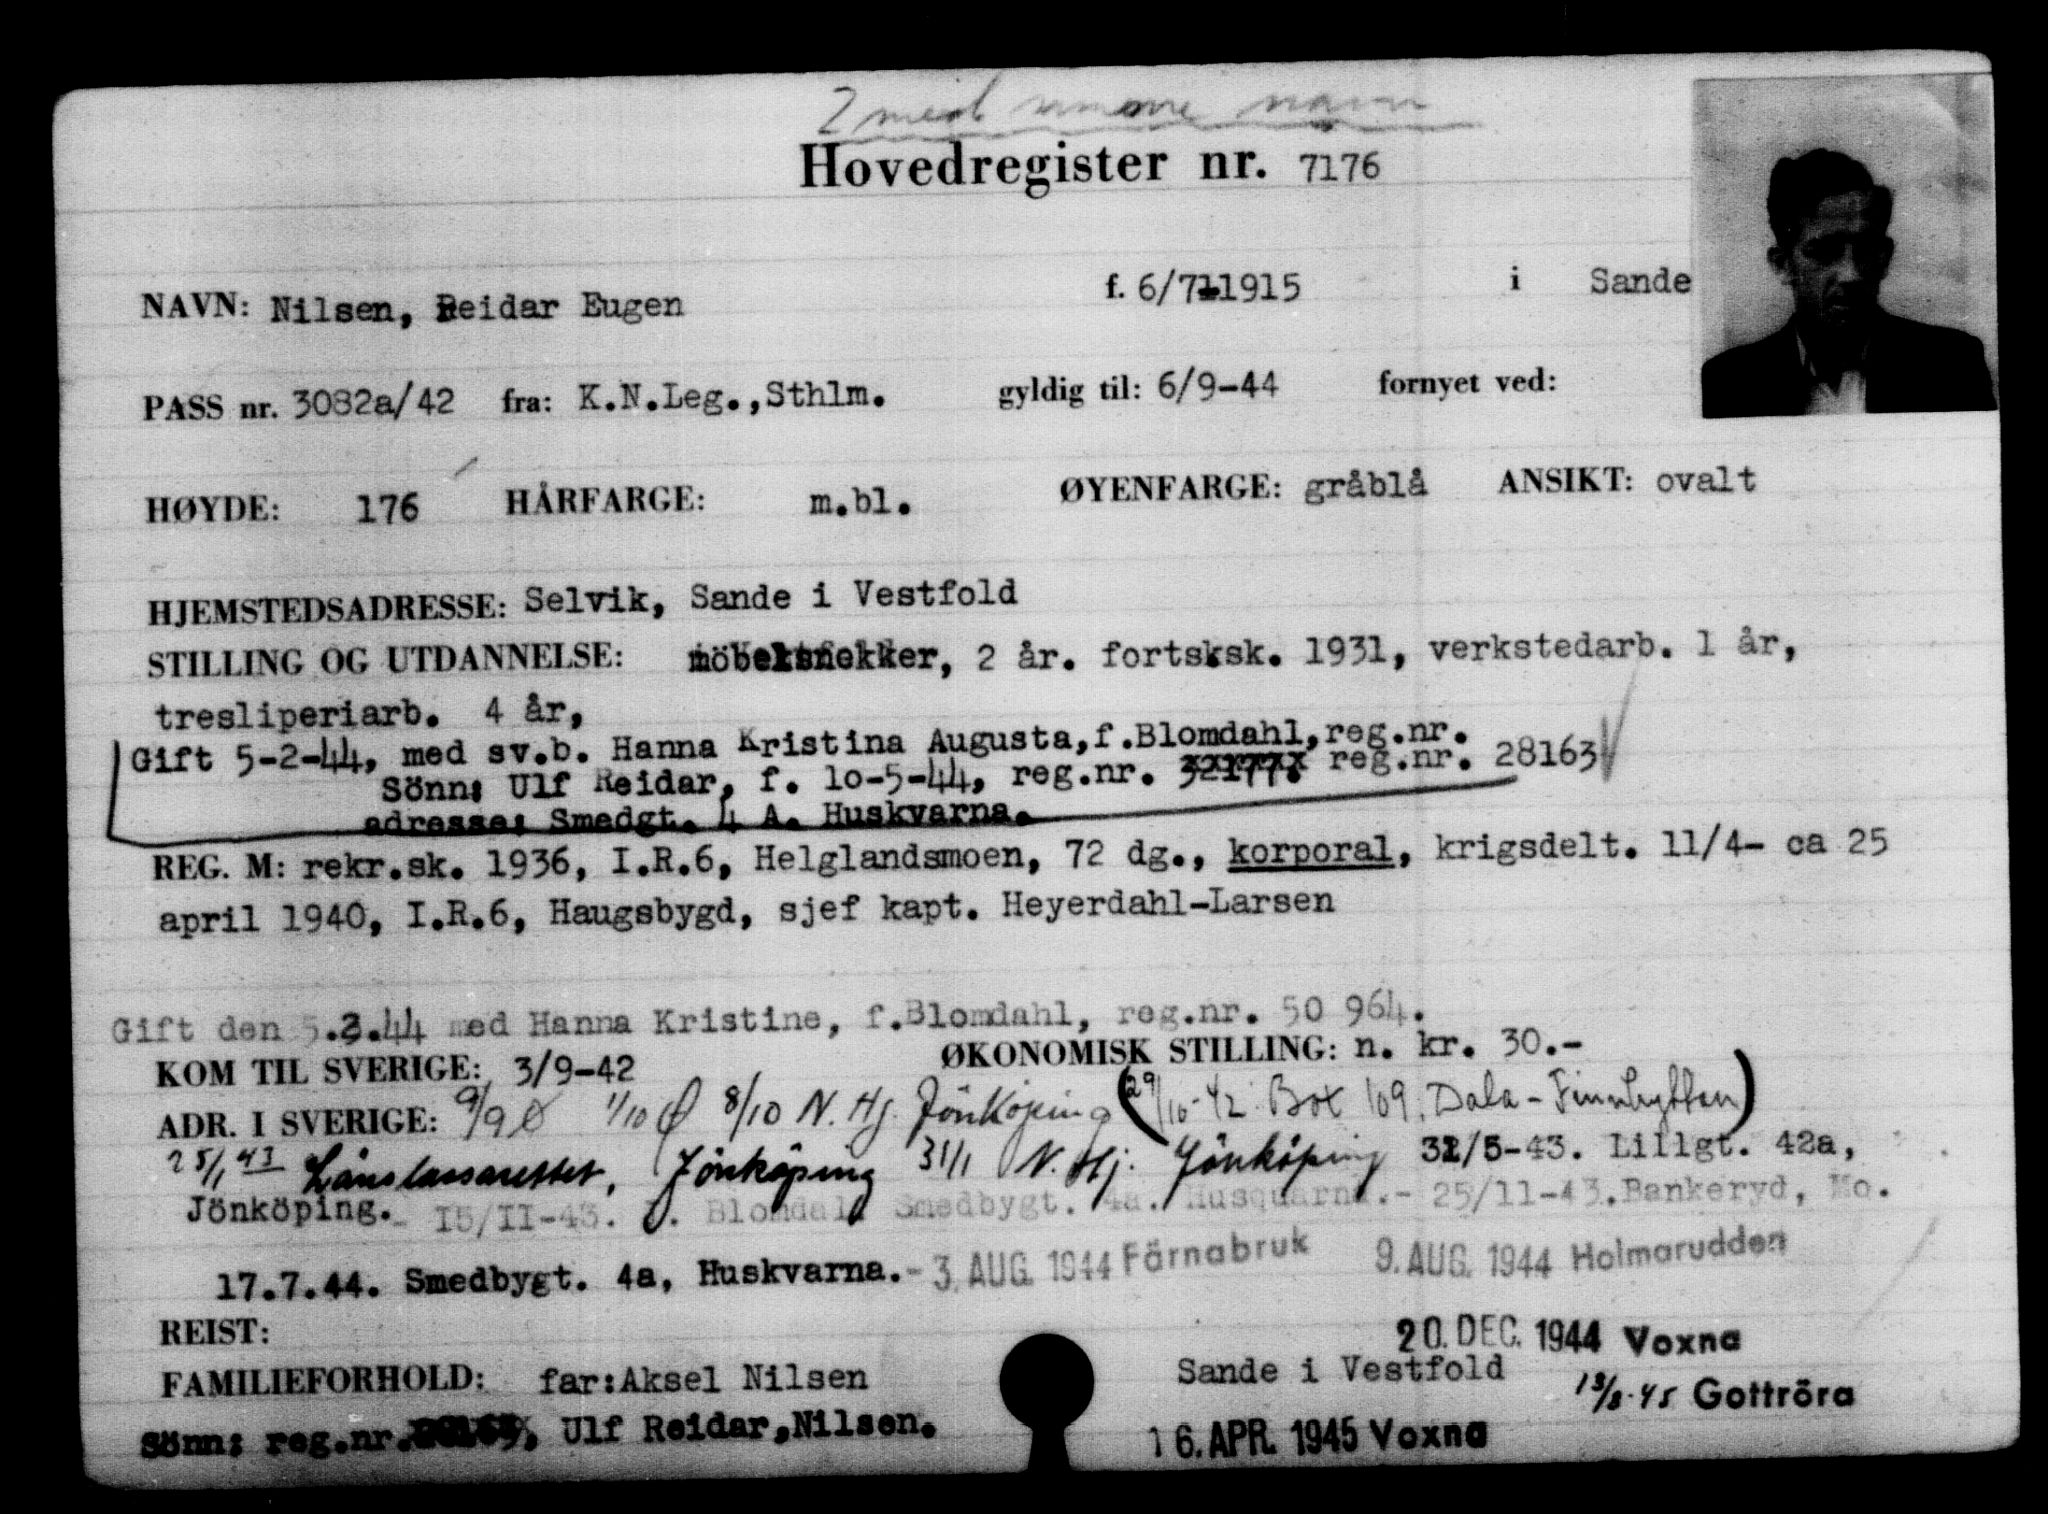 2 med samme navn
Hovedregister nr. 7176
NAVN: Nilsen, Reidar Eugen f. 6/7-1915 i Sande
PASS nr. 3082a/42 fra: K.N.Leg.,Sthlm. gyldig til: 6/9-44 fornyet ved:
HØYDE: 176 HÅRFARGE: m.bl. ØYENFARGE: gråblå ANSIKT: ovalt
HJEMSTEDSADRESSE: Selvik, Sande i Vestfold
STILLING OG UTDANNELSE: möbelsnekker, 2 år. fortsksk. 1931, verkstedarb. 1 år,
tresliperiarb. 4 år,
Gift 5-2-44, med sv.b. Hanna Kristina Augusta,f.Blomdahl,reg.nr.
Sönn: Ulf Reidar, f. 10-5-44, reg.nr. 32177. reg.nr. 28163
adresse: Smedgt. 4 A. Huskvarna.
REG. M: rekr.sk. 1936, I.R.6, Helglandsmoen, 72 dg., korporal, krigsdelt. 11/4- ca 25
april 1940, I.R.6, Haugsbygd, sjef kapt. Heyerdahl-Larsen
Gift den 5.2.44 med Hanna Kristine, f.Blomdahl, reg.nr. 50 964.
KOM TIL SVERIGE: 3/9-42 ØKONOMISK STILLING: n. kr. 30.-
ADR. I SVERIGE: 9/9 Ø 1/10 Ø 8/10 N. Hj. Jönköping (29/10-42. Box 109, Dala-Finnhyttan)
25/1 43 Länslassarettet, Jönköping 31/1 N. Hj. Jönköping 31/5-43. Lillgt. 42a,
Jönköping.- 15/II-43. Blomdal, Smedbygt. 4a. Husquarna.- 25/11-43.Bankeryd, Mo.
17.7.44. Smedbygt. 4a, Huskvarna.- 3. AUG. 1944 Färnabruk 9. AUG. 1944 Holmarudden
REIST: 20. DEC. 1944 Voxna
FAMILIEFORHOLD: far:Aksel Nilsen Sande i Vestfold 13/3-45 Gottröra
Sönn: reg.nr. , Ulf Reidar,Nilsen. 16. APR. 1945 Voxna